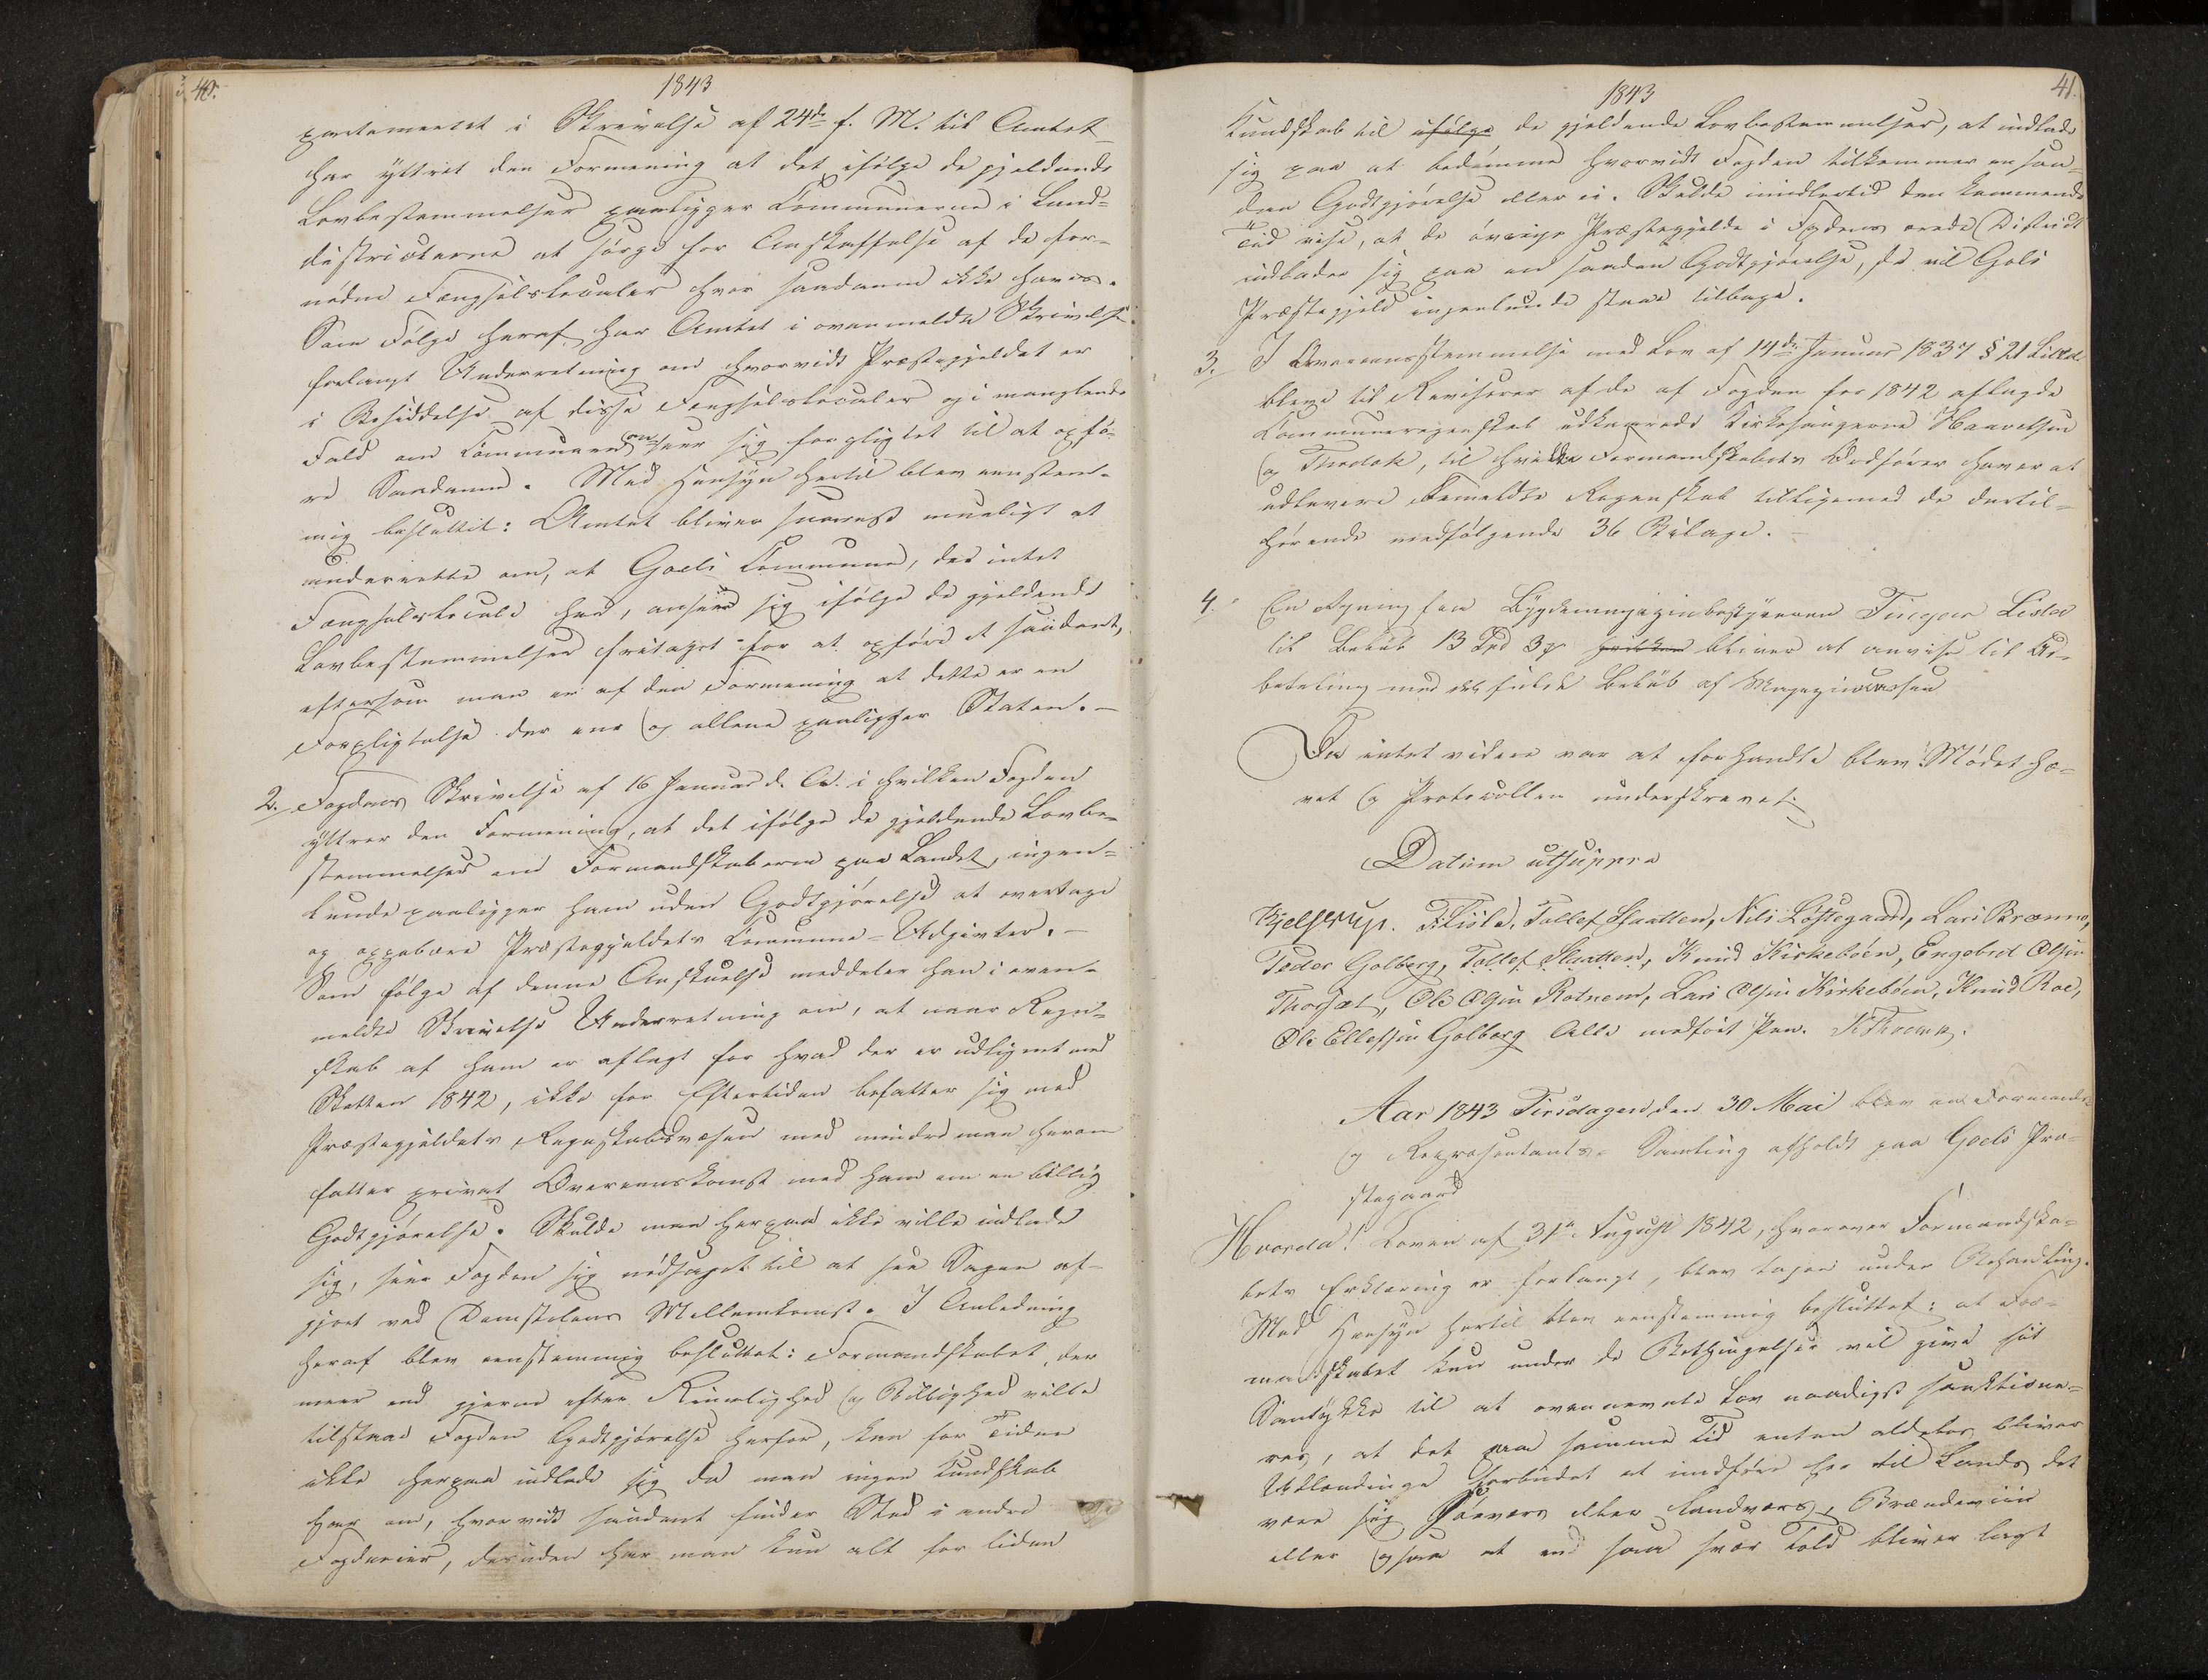 40.
1843
partementet i Skrivelse af 24de f. M. til Amtet
har yttret den Formening at det ifølge de gjeldende
Lovbestemmelser paaligger Communerne i Land-
districterne at sørge for Anskaffelse af de for-
nødne Fængselslocaler hvor saadanne ikke haves.
Som Følge heraf har Amtet i ovenmeldte Skrivelse
forlangt Underretning om hvorvidt Præstegjeldet er
i Besiddelse af disse Fængselslocaler og i manglende
Fald om Communen anseer sig forpligtet til at opfø-
re Saadanne. Med Hensyn hertil blev eenstem-
mig besluttet: Amtet bliver snarest mueligt at
underrette om, at Goels Commune, der intet
Fængselslocale har, anseer sig ifølge de gjeldende
Lovbestemmelser fritaget for at opføre et saadant,
eftersom man er af den Formening at dette er en
Forpligtelse der ene og allene paaligger Staten.—
2. Fogdens Skrivelse af 16 Januar d. A. i hvilken Fogden
yttrer den Formening, at det ifølge de gjeldende Lovbe-
stemmelser om Formandskaberne paa Landet, ingen-
lunde paaligger ham uden Godtgjørelse at overtage
og oppebære Præstegjeldets Commune-Udgivter.—
Som følge af denne Anskuelse meddeler han i oven-
meldte Skrivelse Underretning om, at naar Regn-
skab af ham er aflagt for hvad der er udlignet med
Skatten 1842, ikke for Eftertiden befatter sig med
Præstegjeldets Regnskabsvæsen med mindre man herom
fatter privat Overeenskomst med ham om en billig
Godtgjørelse. Skulde man herpaa ikke ville indlade
sig, seer Fogden sig nødsaget til at see Sagen af-
gjort ved Domstolens Mellemkomst. I Anledning
heraf blev eenstemmig besluttet: Formandskabet, der
meer end gjerne efter Riimelighed og Billighed ville
tilstaae Fogden Godtgjørelse herfor, kan for Tiden
ikke herpaa indlade sig da man ingen Kundskab
har om, hvorvidt saadant finder Sted i andre
Fogderier, desuden har man kun alt for liden
41.
1843
Kundskab til ifølge de gjeldende Lovbestemmelser, at indlade
sig paa at bedømme hvorvidt Fogden tilkommer en saa-
dan Godtgjørelse eller ei. Skulde imidlertid den kommende
Tid vise, at de øvrige Præstegjelde i Fogdens District
indlader sig paa en saadan Godtgjørelse, da vil Gols
Præstegjeld ingenlunde staae tilbage.
3. I Overeensstemmelse med Lov af 14de Januar 1837 § 21
bleve til Revisorer af de af Fogden for 1842 aflagde
Communeregnskab udkaarede Kirkesangerne Haavelsen
og Thredok, til hvilke Formandskabets Ordfører haver at
udlevere bemeldte Regnskab tilligemed de dertil-
hørende medfølgende 36 Bilage.—
4. En Regning fra Bygdemagazinbestyreren Fingar Lisla
til Beløb 13 Spd 3 bliver at anvise til Ud-
betaling med det fulde Beløb af Magazincassen
Da intet videre var at forhandle blev Mødet hæ-
vet og Protocollen underskrevet.
Datum utsuppra
Kjelstrup. F. Lisla, Tollef Slaatten, Nils Listegaard, Lars Brenno,
Peder Golberg, Tollef Slaatten, Knud Kirkebøen, Engebret Olsen
Thorset, Ole Olsen Rotnem, Lars Olsen Kirkebøen, Knud Roe,
Ole Ellefsen Golberg Alle medført Pen.
Aar 1843 Tirsdagen den 30 Mai blev en Formands
og Repræsentants-Samling afholdt paa Goels Præ-
stegaard
Hvorda! Loven af 31te August 1842, hvorover Formandska-
bets Erklæring er forlangt, blev tagen under Behandling.
Med Hensyn hertil blev eenstemmig besluttet: at For-
mandskabet kun under de Bethingelser vil give sit
Samtykke til at ovennævnte Lov naadigst sanktione-
res, at det paa samme Tid enten aldeles bliver
Udlændinge forbudet at indføre her til Lands det
være sig søeværs eller landværs, Brændeviin
eller ogsaa at en saa svær Told bliver lagt